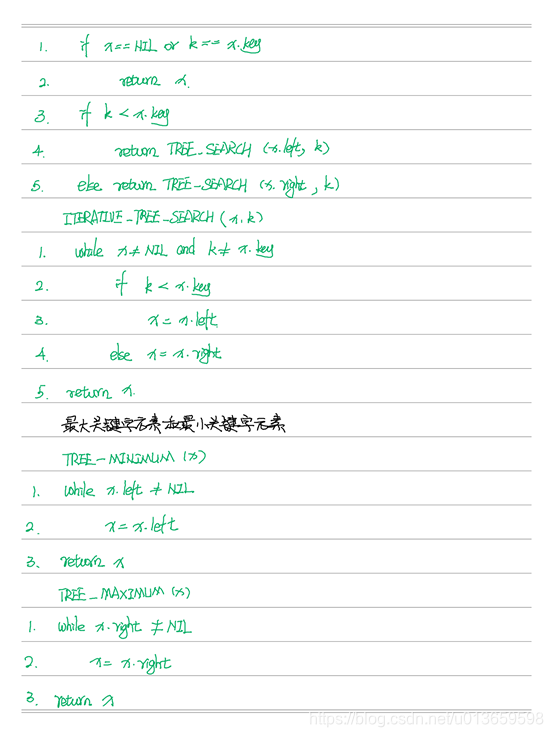 1. if x == NIL or k == x.key
2. return x.
3. if k < x.key
4. return TREE_SEARCH (x.left, k)
5. else return TREE_SEARCH (x.right, k)
ITERATIVE_TREE_SEARCH (x, k)
1. while x ≠ NIL and k ≠ x.key
2. if k < x.key
3. x = x.left
4. else x = x.right
5. return x.
最大关键字元素和最小关键字元素
TREE-MINIMUM (x)
1. while x.left ≠ NIL
2. x = x.left
3. return x
TREE_MAXIMUM (x)
1. while x.right ≠ NIL
2. x = x.right
3. return x
https://blog.csdn.net/u013659598